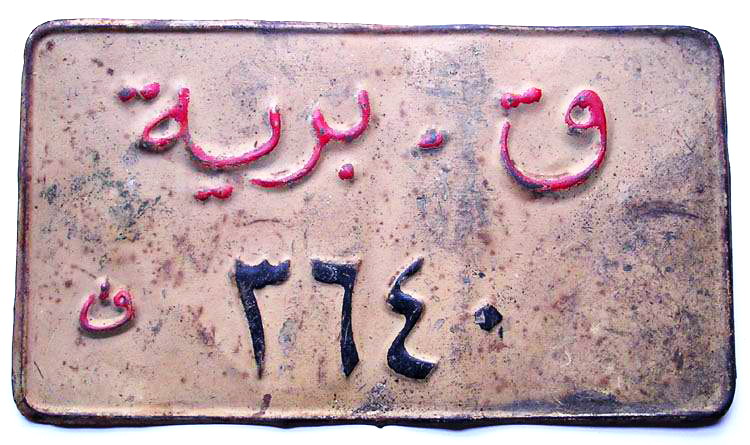 ق . برية
٣٦٤٠ ف